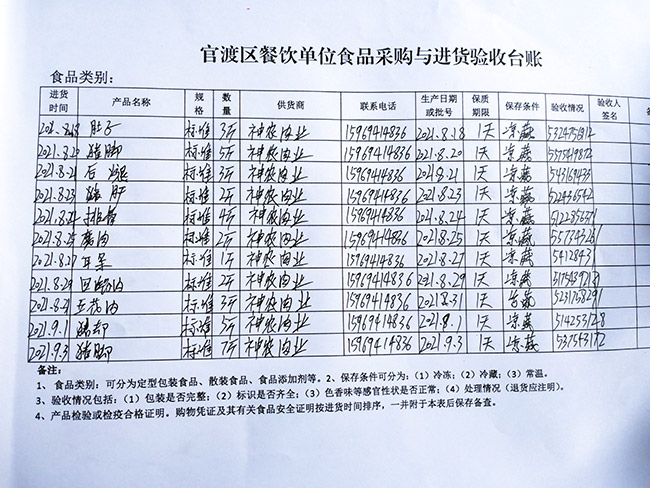 官渡区餐饮单位食品采购与进货验收台账
食品类别：
进货时间 产品名称 规格 数量 供货商 联系电话 生产日期或批号 保质期限 保存条件 验收情况 验收人签名
2021.8.18 肚子 标准 3斤 神农肉业 15969414836 2021.8.18 1天 凉藏
2021.8.20 猪脚 标准 5斤 神农肉业 15969414836 2021.8.20 1天 凉藏
2021.8.21 后腿 标准 3斤 神农肉业 15969414836 2021.8.21 1天 凉藏
2021.8.23 猪肝 标准 2斤 神农肉业 15969414836 2021.8.23 1天 凉藏
2021.8.24 排骨 标准 4斤 神农肉业 15969414836 2021.8.24 1天 凉藏
2021.8.25 肉 标准 2斤 神农肉业 15969414836 2021.8.25 1天 凉藏
2021.8.27 标准 1斤 神农肉业 15969414836 2021.8.27 1天 凉藏
2021.8.29 肉 标准 2斤 神农肉业 15969414836 2021.8.29 1天 凉藏
2021.8.31 五花肉 标准 3斤 神农肉业 15969414836 2021.8.31 1天 凉藏
2021.9.1 标准 5斤 神农肉业 15969414836 2021.9.1 1天 凉藏
2021.9.3 猪脚 标准 7斤 神农肉业 15969414836 2021.9.3 1天 凉藏
备注：
1、食品类别：可分为定型包装食品、散装食品、食品添加剂等。2、保存条件可分为：（1）冷冻；（2）冷藏；（3）常温。
3、验收情况包括：（1）包装是否完整；（2）标识是否齐全；（3）色香味等感官性状是否正常；（4）处理情况（退货应注明）。
4、产品检验或检疫合格证明。购物凭证及其有关食品安全证明按进货时间排序，一并附于本表后保存备查。